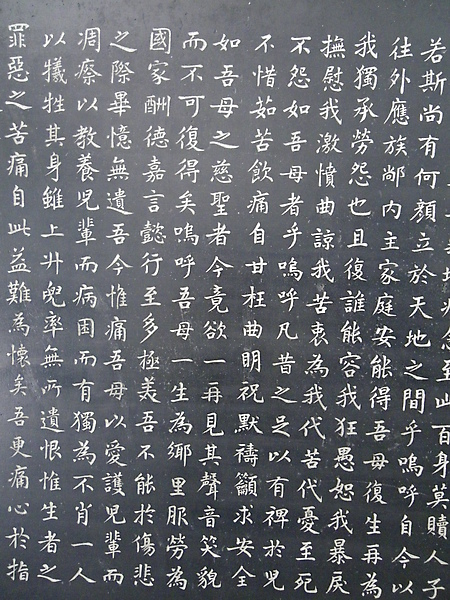 念至此百身莫贖人子
若斯尚有何顏立於天地之間乎嗚呼自今以
往外應族鄙內主家庭安能得吾母復生再為
我獨承勞怨也且復誰能容我狂愚恕我暴戾
撫慰我激憤曲諒我苦衷為我代苦代憂至死
不怨如吾母者乎嗚呼凡昔之足以有裨於兒
不惜茹苦飲痛自甘枉曲明祝默禱籲求安全
如吾母之慈聖者今竟欲一再見其聲音笑貌
而不可復得矣嗚呼吾母一生為鄉里服勞為
國家酬德嘉言懿行至多極美吾不能於傷悲
之際畢憶無遺吾今惟痛吾母以愛護兒輩而
凋瘵以教養兒輩而病困而有獨為不肖一人
以犧牲其身雖上升兜率無所遺恨惟生者之
罪惡之苦痛自此益難為懷矣吾更痛心於指